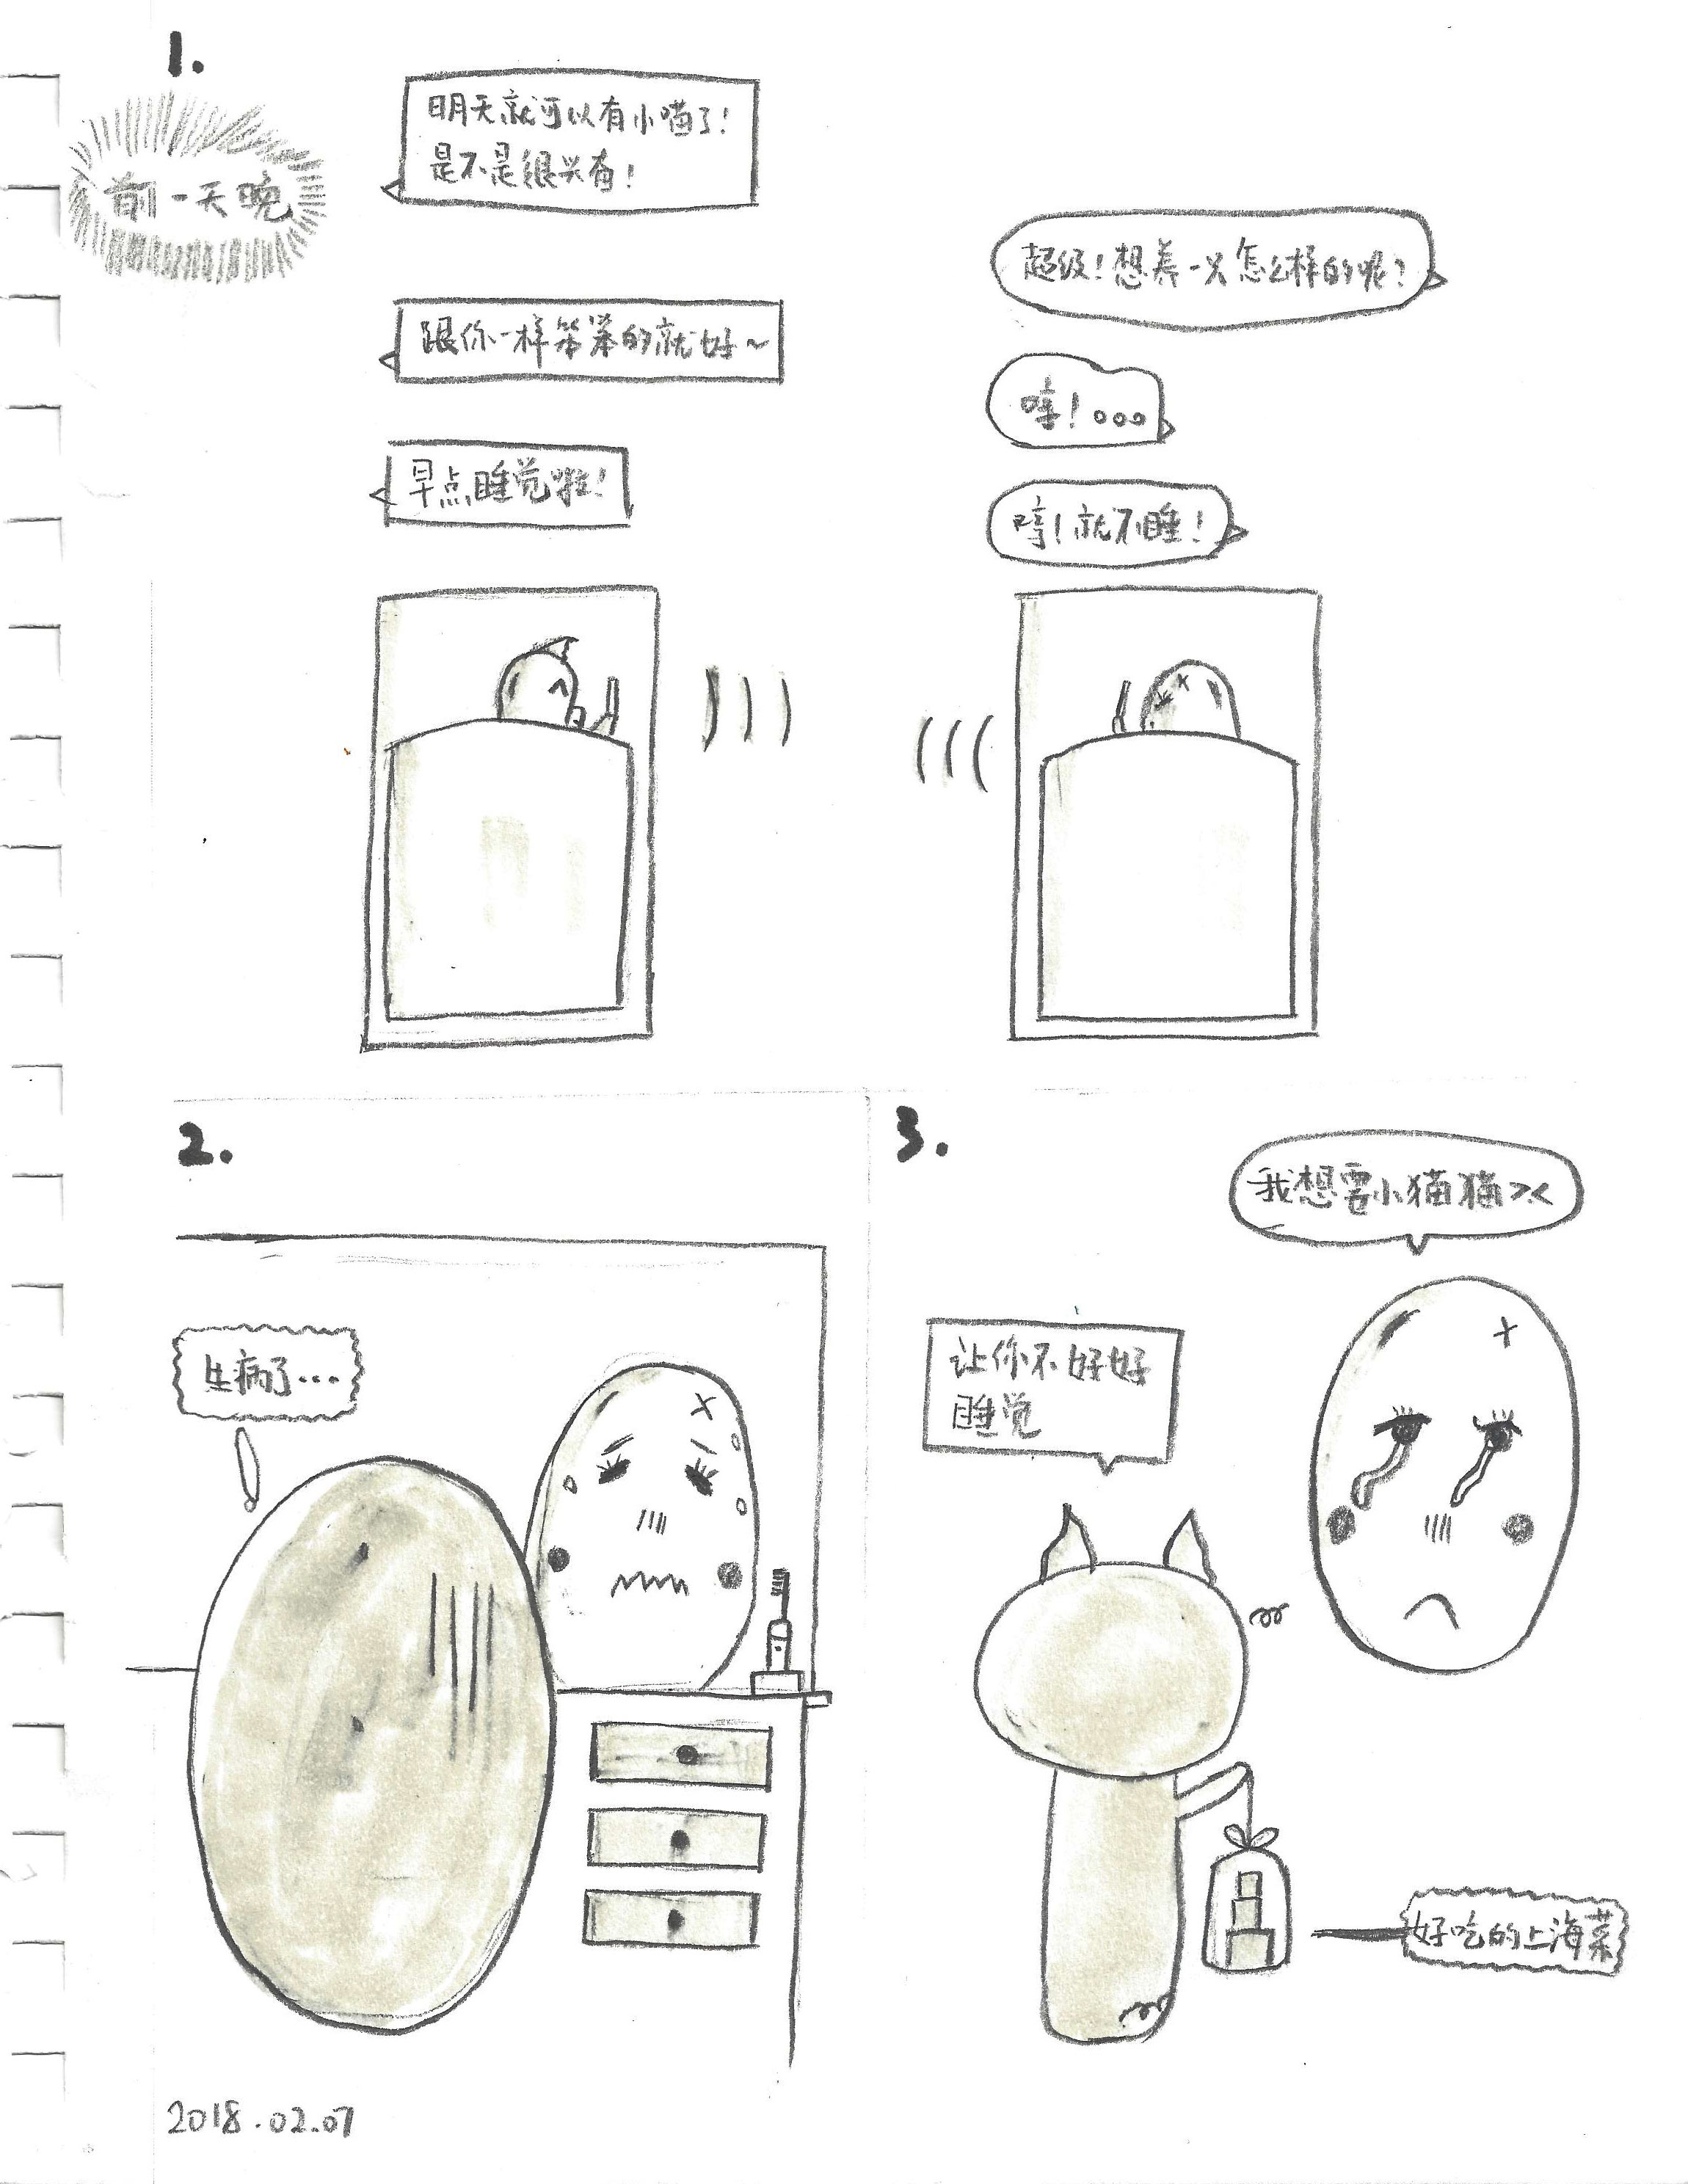 1.
前一天晚
明天就可以有小喵了!
是不是很兴奋!
超级!想养一只怎么样的呢?
跟你一样笨笨的就好~
哼!。。。
早点睡觉啦!
哼!就不睡!
2.
生病了...
3.
我想要小猫猫><
让你不好好
睡觉
好吃的上海菜
2018.02.07